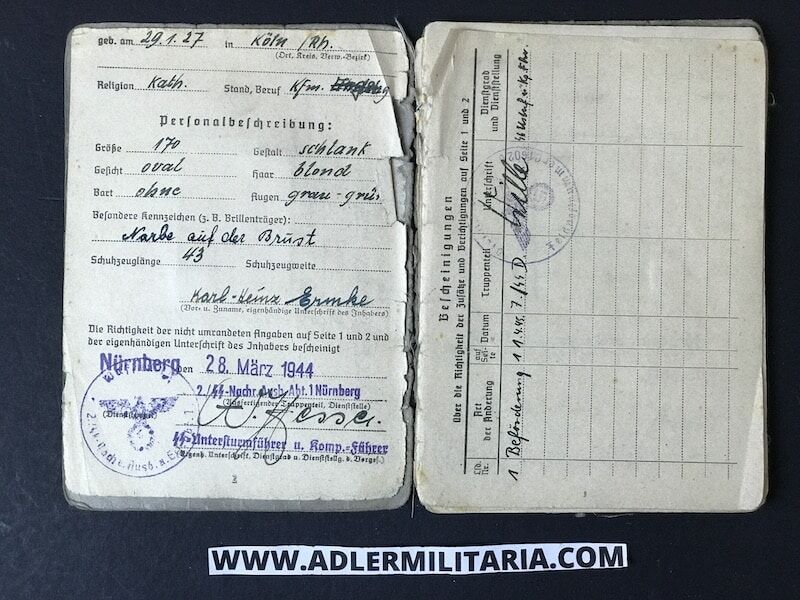 geb. am 29.1.27 in Köln /Rh.
(Ort, Kreis, Verw.-Bezirk)
Religion Kath. Stand, Beruf Kfm.
Personalbeschreibung:
Größe 170 Gestalt schlank
Gesicht oval Haar blond
Bart ohne Augen grau-grün
Besondere Kennzeichen (z. B. Brillenträger):
Narbe auf der Brust
Schuhzeuglänge 43 Schuhzeugweite
Karl-Heinz Ermke
(Vor- u. Zuname, eigenhändige Unterschrift des Inhabers)
Die Richtigkeit der nicht umrandeten Angaben auf Seite 1 und 2 und
der eigenhändigen Unterschrift des Inhabers bescheinigt
Nürnberg den 28. März 1944
2./SS-Nachr.Ausb.-Abt.1 Nürnberg
(Ausfertigender Truppenteil, Dienststelle)
SS-Untersturmführer u. Komp.-Führer
(Eigenh. Unterschrift, Dienstgrad u. Dienststellg. d. Vorges.)
2
Bescheinigungen
über die Richtigkeit der Zusätze und Berichtigungen auf Seite 1 und 2
Lfd. Nr. Art der Änderung auf Sei-te Datum Truppenteil Unterschrift Dienstgrad und Dienststellung
1 Beförderung 1 1.4.45
Feldpostnummer
3
WWW.ADLERMILITARIA.COM